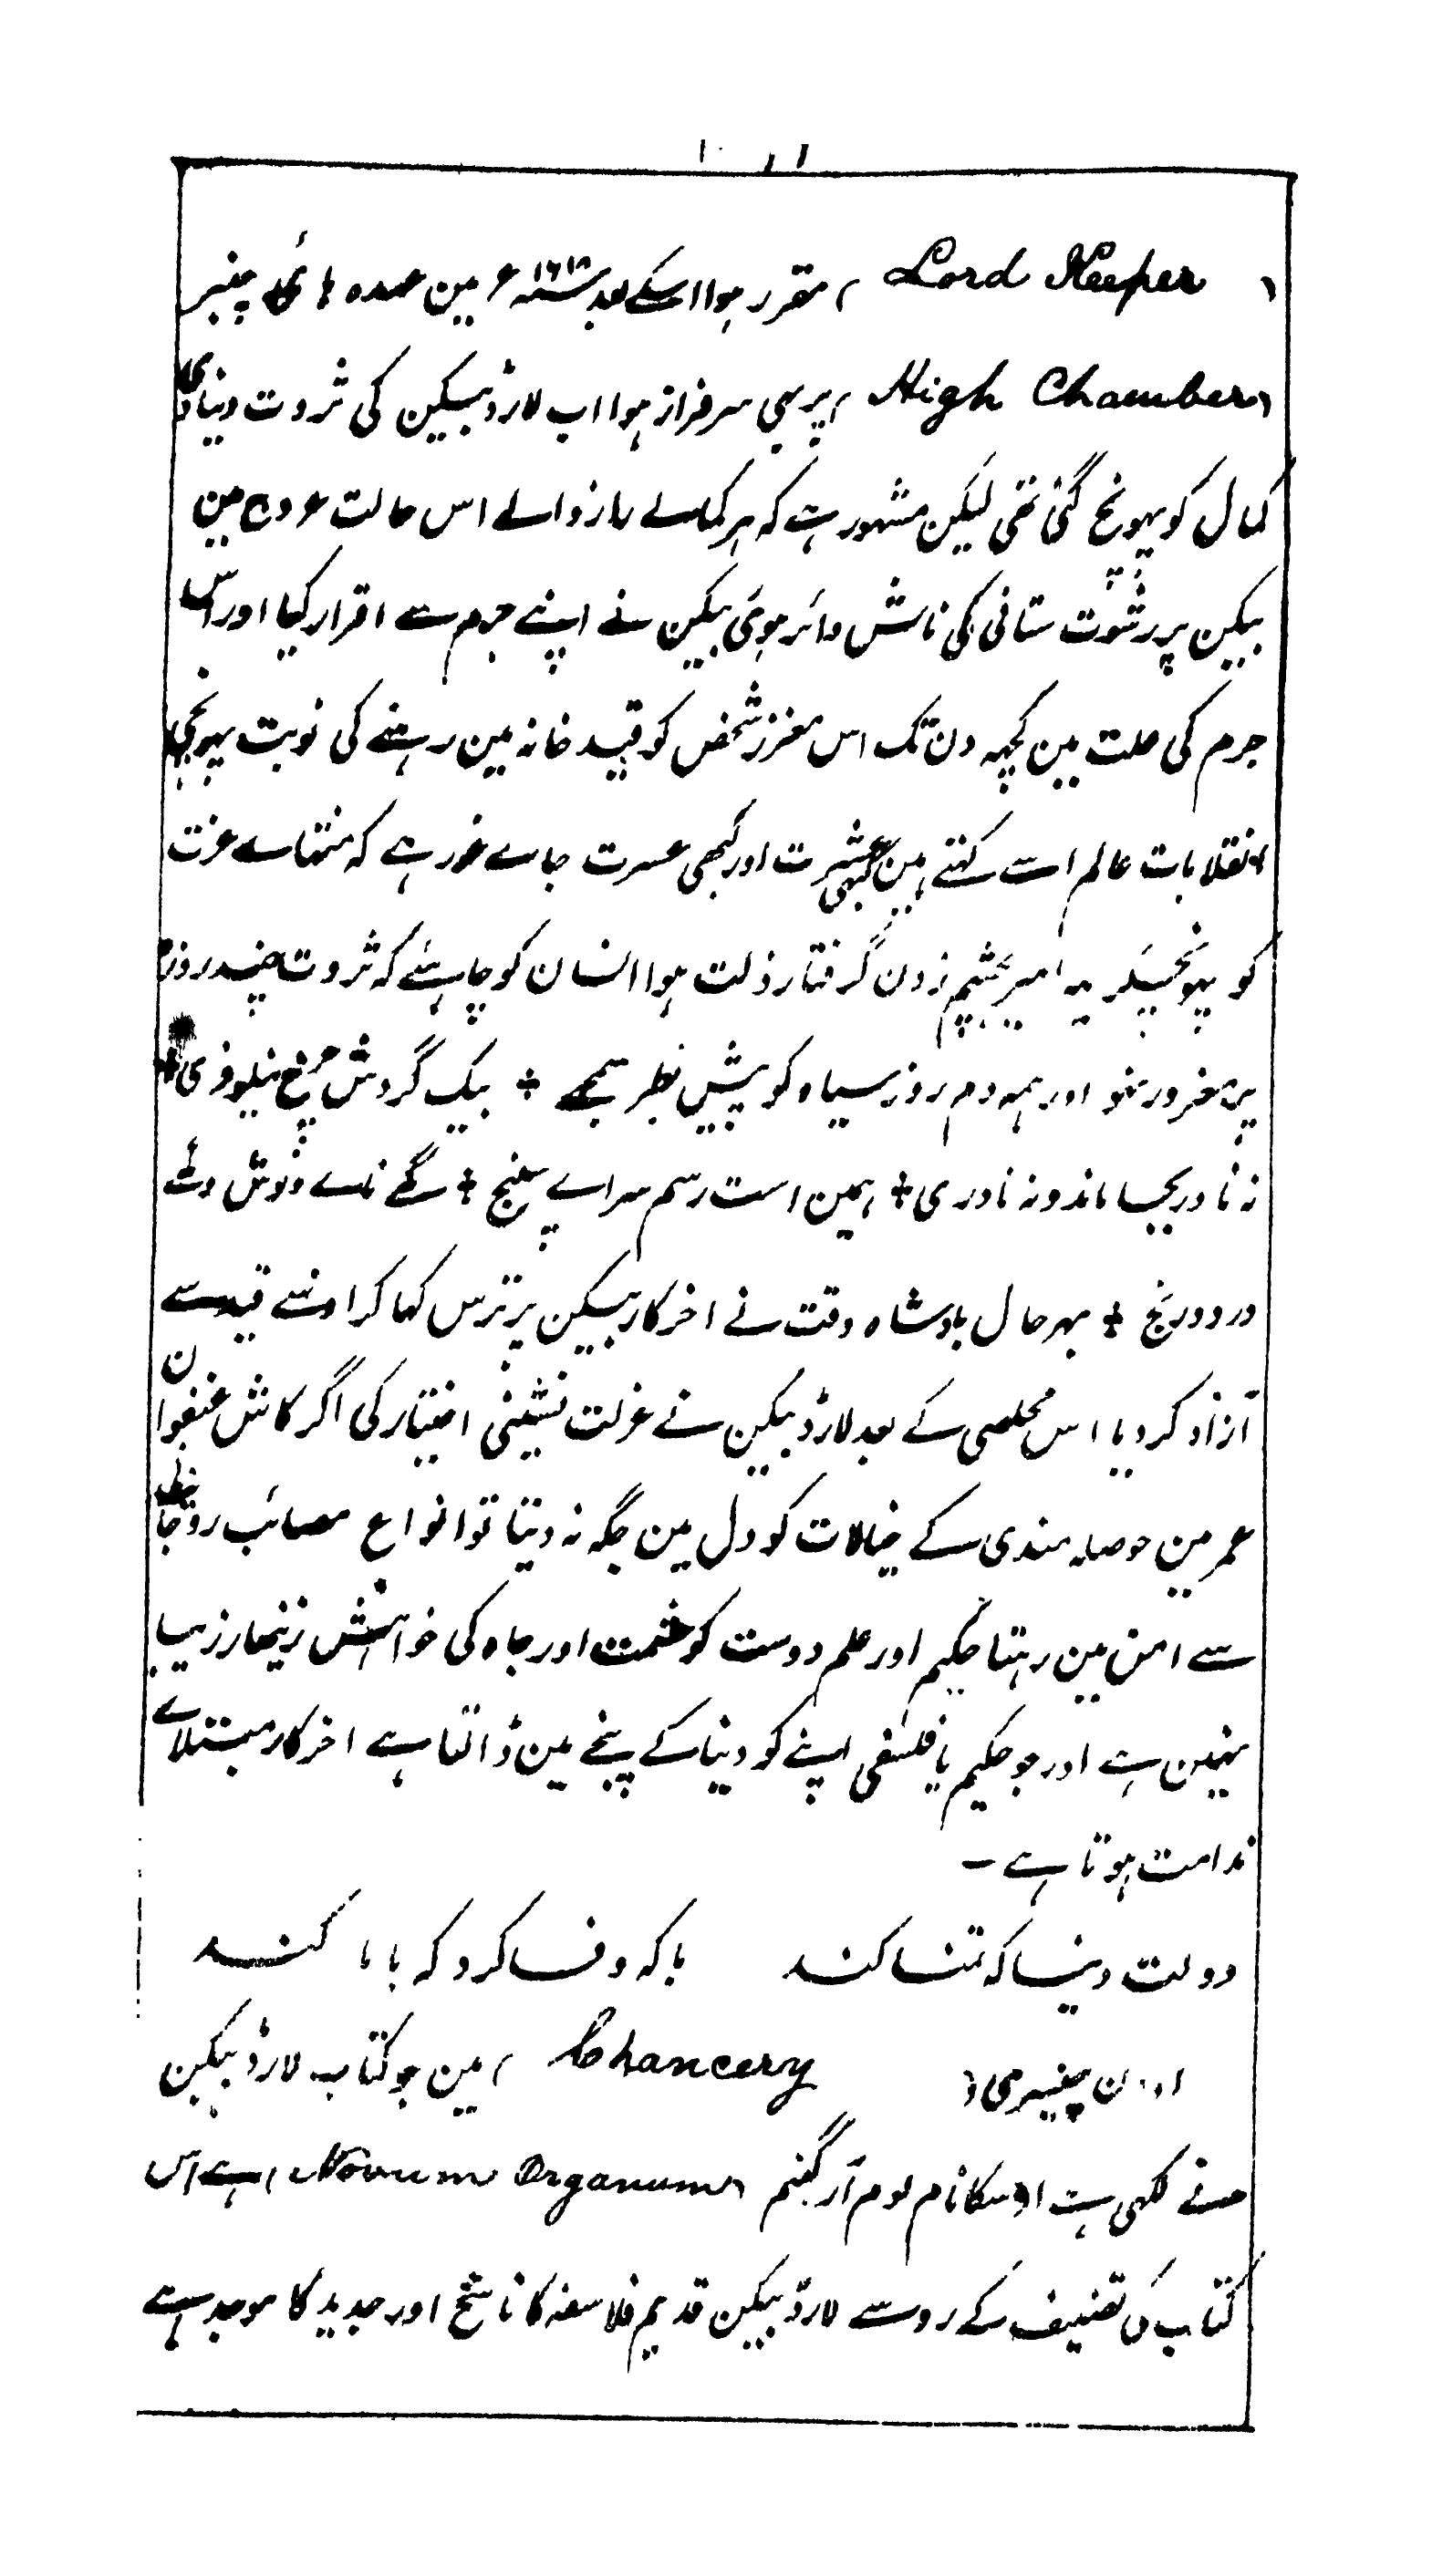 ( Lord Keeper ) مقرر ہوا اسکے بعد ۱۶۱۸ء مین عہدہ ہائی چنبر
( High Chamber ) پر بہی سرفراز ہوا اب لارڈ بیکین کی ثروت دنیاوی
کمال کو پہونچ گئی تھی لیکن مشہور ہے کہ ہر کمالے را زوالے اس حالت عروج مین
بیکن پر رشوت ستانی کی نالش دائر ہوئی بیکین نے اپنے جرم سے اقرار کیا اور اس
جرم کی علت مین کچہہ دن تک اس معزز شخص کو قید خانہ مین رہنے کی نوبت پہونچی
انقلابات عالم اسے کہتے ہین کبہی عشرت اور کبھی عسرت جاے غور ہے کہ منتہاے عزت
کو پہونچکر یہ امیر بچشم زدن گرفتار ذلت ہوا انسان کو چاہئے کہ ثروت چند روزہ
پر مغرور نہو اور ہمہ دم روز سیاہ کو پیش نظر سمجھے + بیک گردش چرخ نیلوفری +
نہ نادر بجا ماند و نہ نادری + ہمین است رسم سراے سپنج + گہے ناے و نوش و گہے
درد و رنج + بہر حال بادشاہ وقت نے اخرکار بیکین پر ترس کہا کر اوسے قید سے
آزاد کر دیا اس مخلصی کے بعد لارڈ بیکن نے عزلت نشینی اختیار کی اگر کاش عنفوان
عمر مین حوصلہ مندی کے خیالات کو دل مین جگہ نہ دیتا تو انواع مصائب روحانی
سے امن مین رہتا حکیم اور علم دوست کو حشمت اور جاہ کی خواہش زنہار زیبا
نہین ہے اور جو حکیم یا فلسفی اپنے کو دنیا کے پنجے مین ڈالتا ہے اخرکار مبتلاے
ندامت ہوتا ہے –
دولت دنیا کہ تمنا کند با کہ وفا کرد کہ با ما کند
چنسری ( Chancery ) مین جو کتاب لارڈ بیکن
نے لکہی ہے اوسکا نام نوم آرگینم ( Novum Organum ) ہے اس
کتاب کی تصنیف کے رو سے لارڈ بیکن قدیم فلاسفہ کا ناسخ اور جدید کا موجد ہے